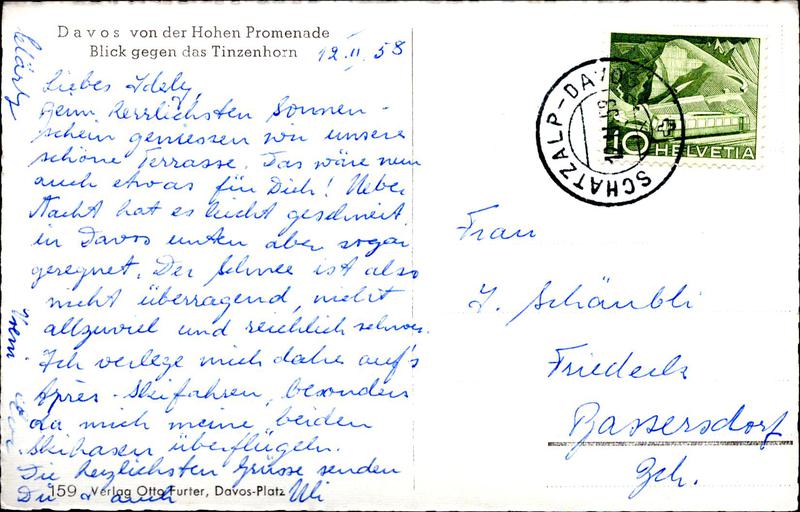 Davos von der Hohen Promenade
Blick gegen das Tinzenhorn
12.II.58
Liebes Idely,
Beim herrlichsten Sonnen-
schein geniessen wir unsere
schöne Terrasse. Das wäre nun
auch etwas für Dich! Ueber
Nacht hat es leicht geschneit
in Davos unten aber sogar
geregnet. Der Schnee ist also
nicht überragend, nicht
allzuviel und reichlich schwer.
Ich verlege mich daher auf's
Après-Skifahren, besonders
da mich meine beiden
Skihasen überflügeln.
Die herzlichsten Grüsse senden
Dir auch Uli
159 Verlag Otto Furter, Davos-Platz
SCHATZALP-DAVOS
10 HELVETIA
Frau
I. Schäubli
Friedeck
Bassersdorf
Zch.